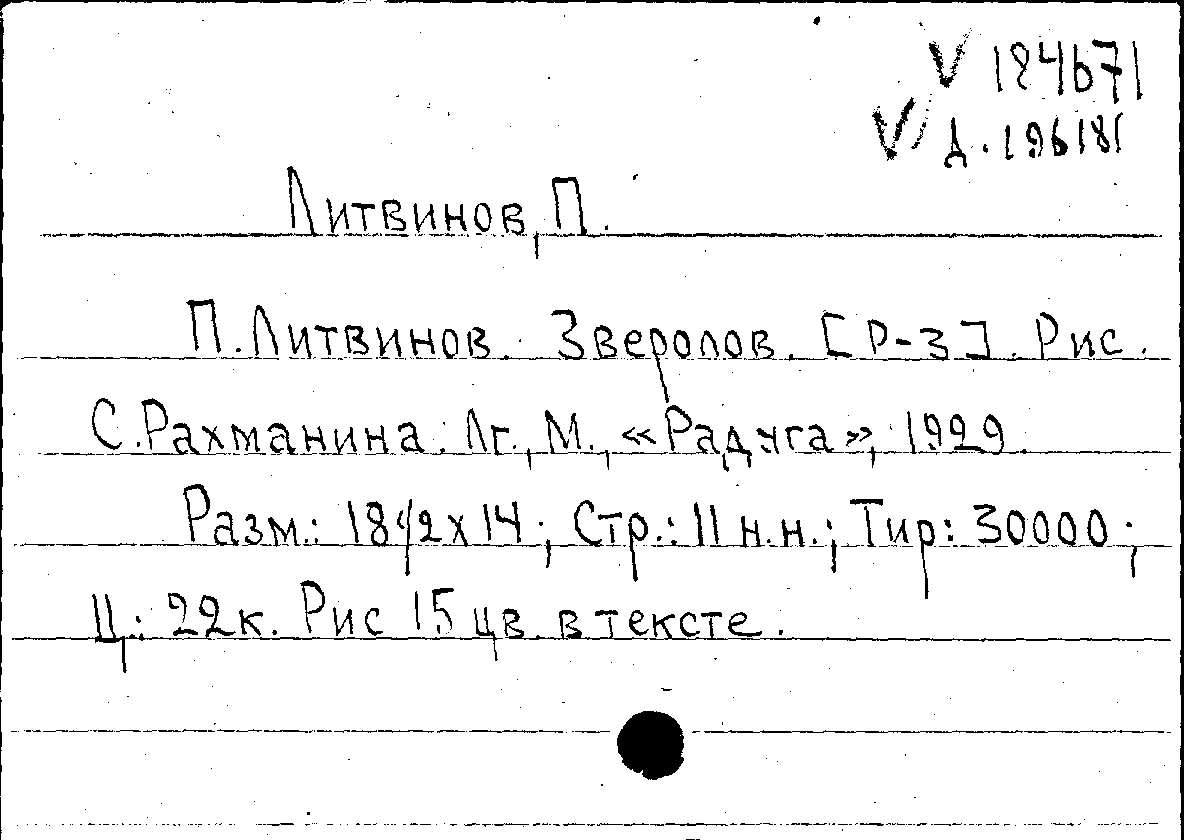 V 184671
V Д. 196181
Литвинов, П.
П. Литвинов. Зверолов. [Р-З]. Рис.
С. Рахманина. Лг., М., «Радуга», 1929.
Разм.: 18 1/2 х 14; Стр.: 11 н.н.; Тир: 30000;
Ц.: 22к. Рис 15 цв. в тексте.